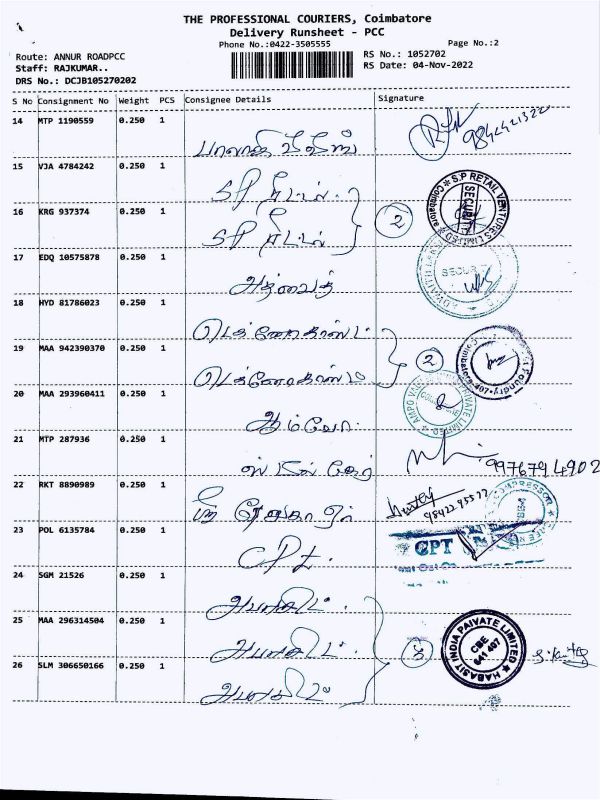 THE PROFESSIONAL COURIERS, Coimbatore
Delivery Runsheet - PCC
Phone No.:0422-3505555
Page No.:2
Route: ANNUR ROADPCC
RS No.: 1052702
Staff: RAJKUMAR..
RS Date: 04-Nov-2022
DRS No.: DCJB105270202
S No Consignment No Weight PCS Consignee Details Signature
14 MTP 1190559 0.250 1
9842421322
15 VJA 4784242 0.250 1
SP ரீடடல்.
S.P RETAIL VENTURES LIMITED ★ Coimbatore ★
SECURITY
16 KRG 937374 0.250 1
SP ரீடடல்
2
17 EDQ 10575878 0.250 1
அத்வைத்
SECURITY
18 HYD 81786023 0.250 1
டெக்னோகாஸ்ட்
19 MAA 942390370 0.250 1
2
Foundry
20 MAA 293960411 0.250 1
ஆம்வோ.
PRIVATE LIMITED
21 MTP 287936 0.250 1
9976794902
22 RKT 8890989 0.250 1
ஸ்ரீ
9842295522
COMPRESSOR
23 POL 6135784 0.250 1
CPT.
CPT
24 SGM 21526 0.250 1
அபாசிட்.
25 MAA 296314504 0.250 1
அபாசிட்.
3
HABASIT INDIA PAIVATE LIMITED
CBE
641 407
26 SLM 306650166 0.250 1
அபாசிட்